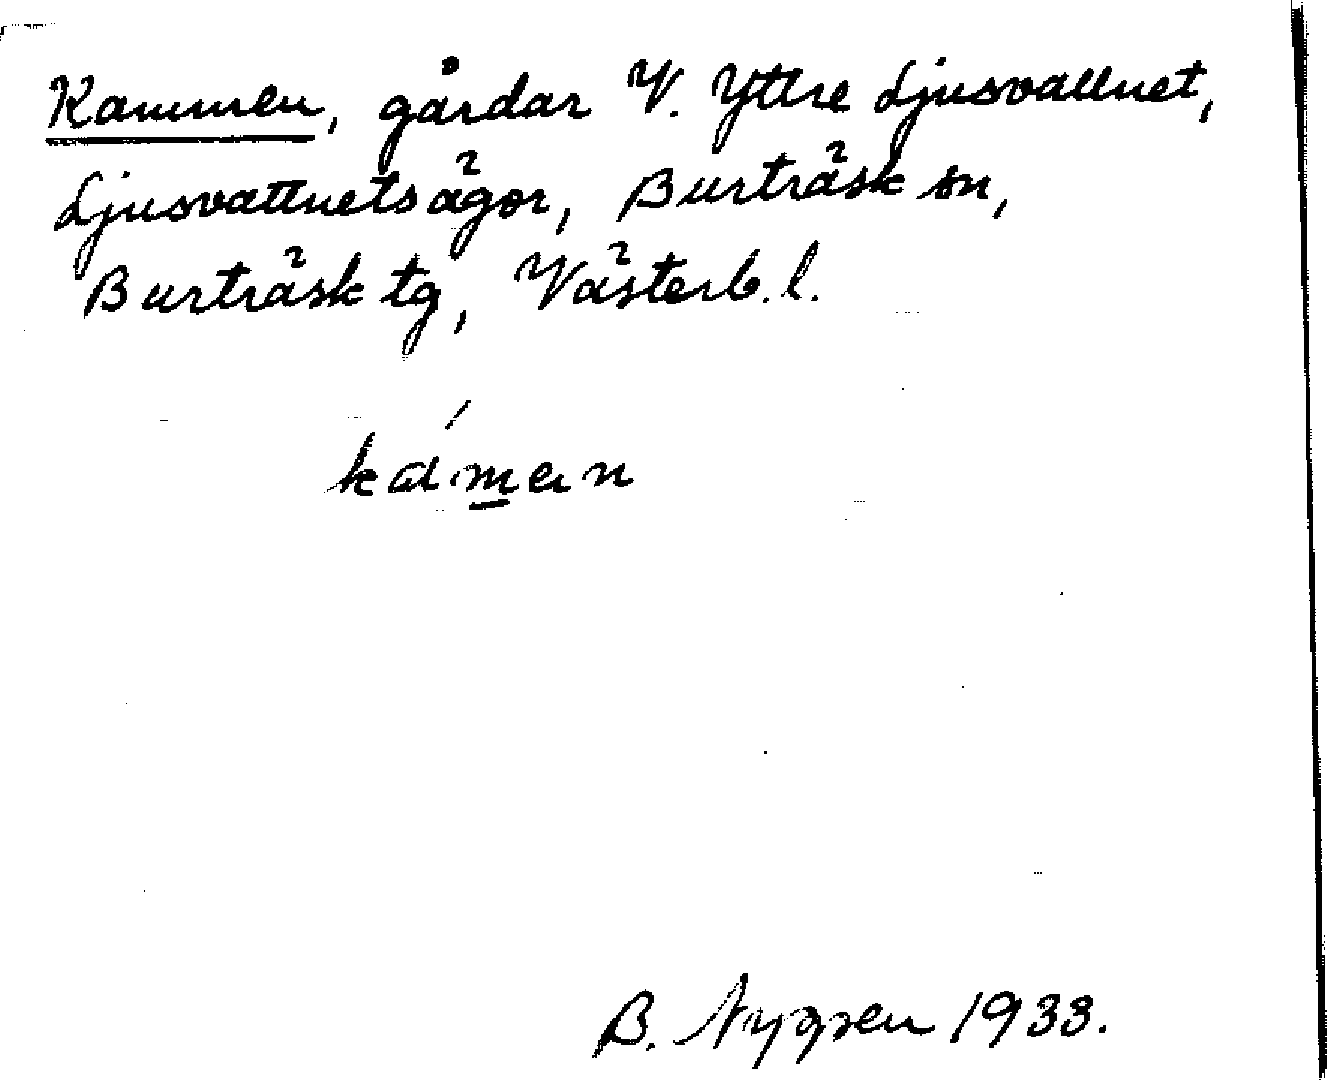 Kammen, gårdar V. Yttre Ljusvattnet,
Ljusvattnets ägor, Burträsk sn,
Burträsk tg, Västerb. l.
kámαn
B. Nygren 1933.